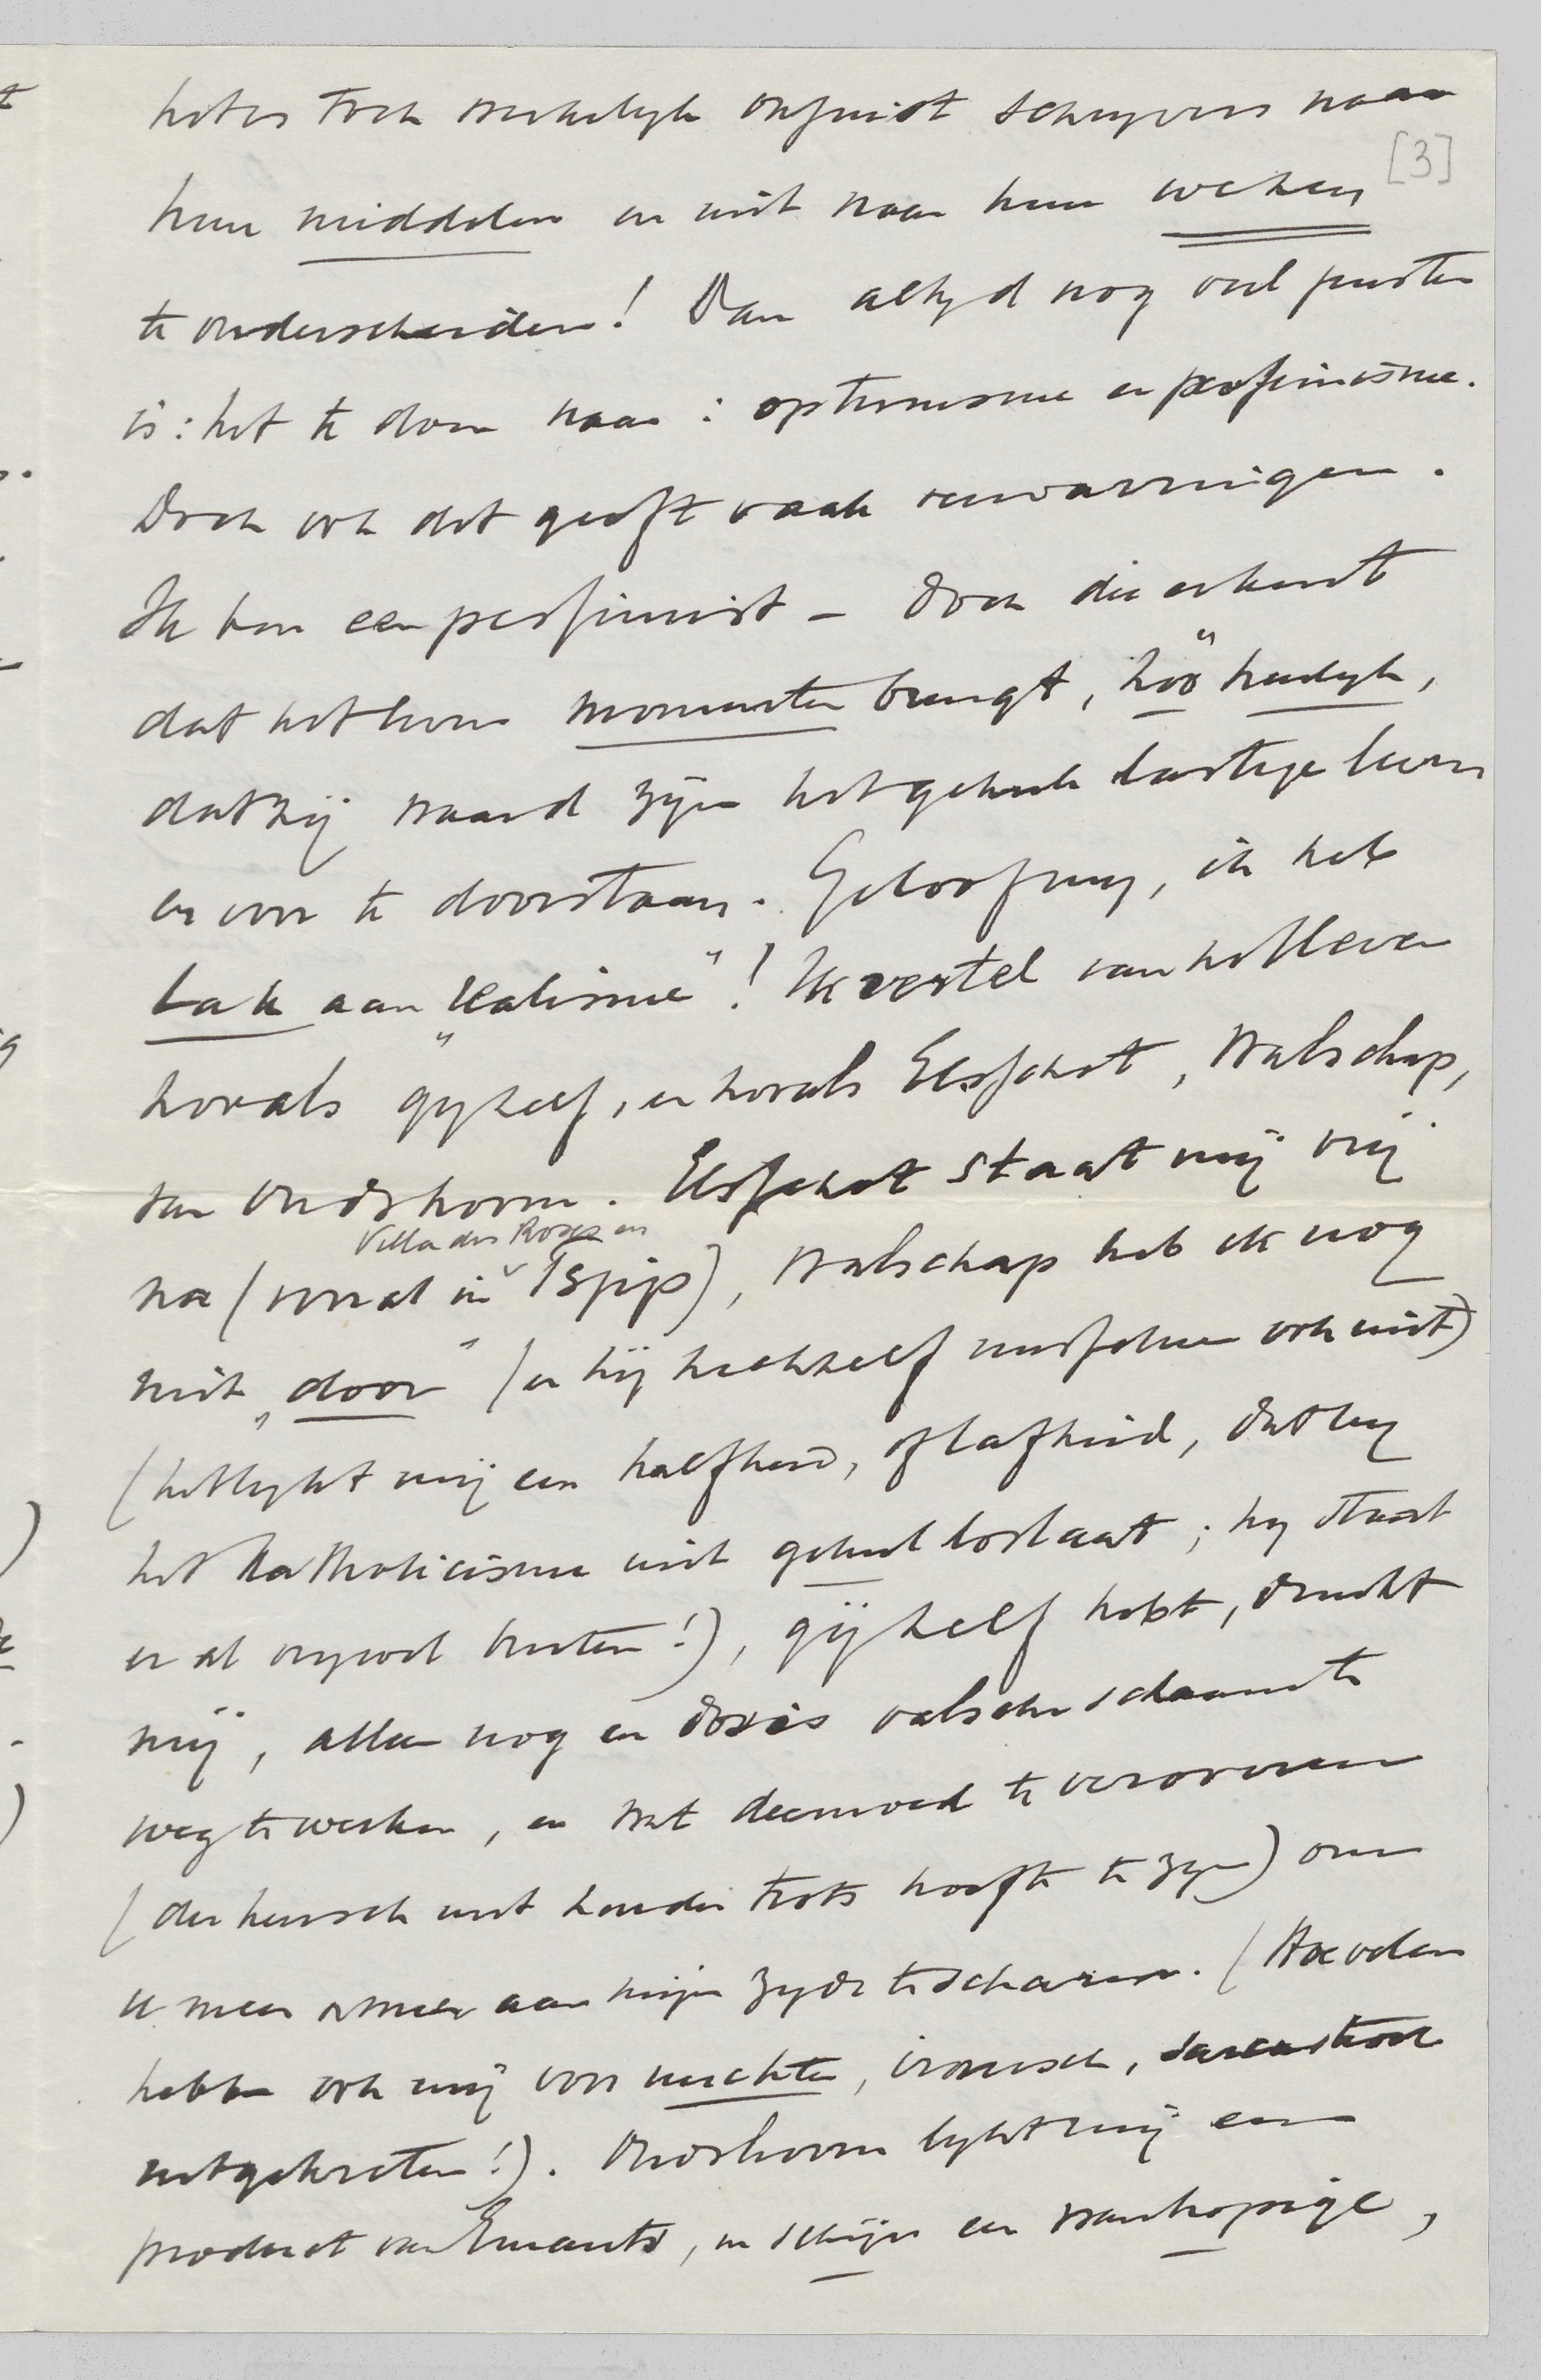 het is toch werkelyk onjuist schryvers naar
[3]
hun middelen en niet naar hun wezen
te onderscheiden! Dan altyd nog veel juister
is: het te doen naar: optimisme en pessimisme.
Doch ook dat geeft vaak verwarringen.
Ik ben een pessimist – doch die erkent
dat het leven momenten brengt, "zóó heerlyk,
dat zij waard zijn het geheele lastige leven
er voor te doorstaan. Geloof my, ik heb
lak aan "realisme"! Ik vertel van het leven
zooals gy zelf, en zooals Elsschot, Walschap,
van Oudshoorn. Elsschot staat mij vrij
Villa des Roses en
na (vooral in Tsjip), Walschap heb ik nog
niet "door" (en hij zichzelf misschien ook niet)
(het lykt mij een halfheid, of lafheid, dat hy
het Katholicisme niet geheel loslaat; hy staat
er al vrywel buiten!), gij zelf hebt, dunkt
mij, alleen nog een dosis valsche schaamte
weg te werken, en wat deemoed te veroveren
(die heusch niet zonder trots hoeft te zyn) om
u meer en meer aan mijn zyde te scharen. (Hoevelen
hebben ook mij voor nuchter, ironisch, sarcastisch
uitgekreten!). Oudshoorn lykt mij een
product van Emants, in schijn een wanhopige,